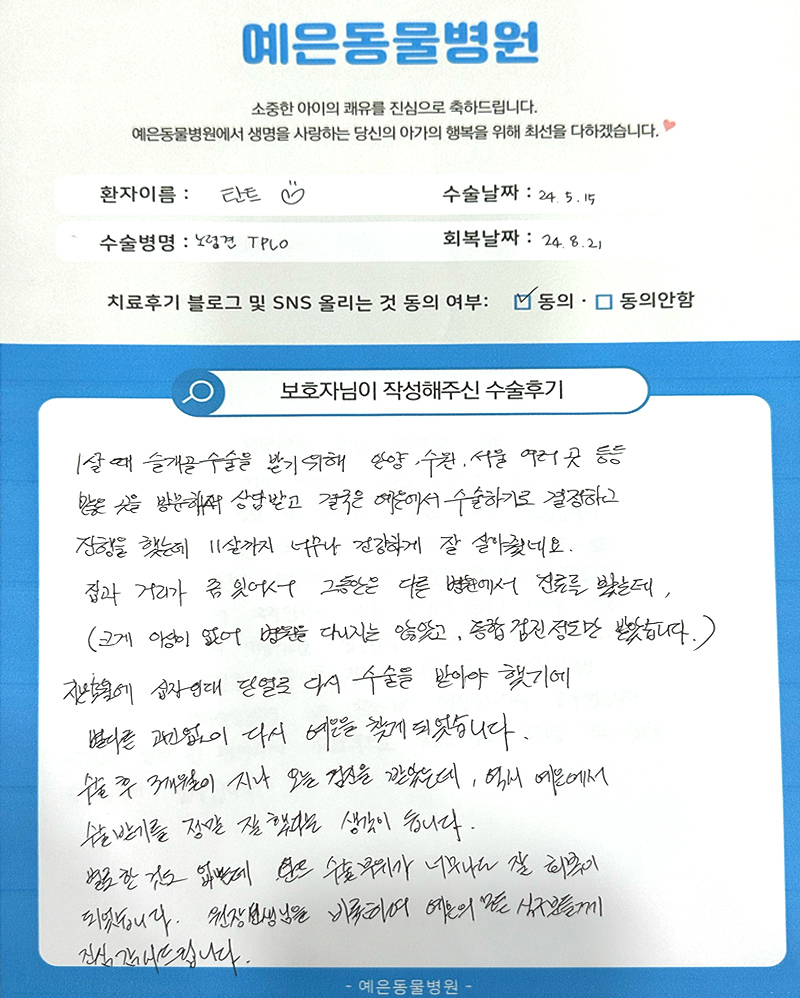 예은동물병원
소중한 아이의 쾌유를 진심으로 축하드립니다.
예은동물병원에서 생명을 사랑하는 당신의 아가의 행복을 위해 최선을 다하겠습니다.
환자이름 : 탄트 수술날짜 : 24. 5. 15
수술병명 : 노령견 TPLO 회복날짜 : 24. 8. 21
치료후기 블로그 및 SNS 올리는 것 동의 여부: ☑ 동의 · ☐ 동의안함
보호자님이 작성해주신 수술후기
1살 때 슬개골 수술을 받기 위해 안양, 수원, 서울 여러 곳 등등
많은 곳을 방문해서 상담받고 결국은 예은에서 수술하기로 결정하고
진행을 했는데 11살까지 너무나 건강하게 잘 살아줬네요.
집과 거리가 좀 있어서 그동안은 다른 병원에서 진료를 봤는데,
(크게 이상이 없어 병원을 다니지는 않았고, 종합검진 정도만 받았습니다.)
십자인대 단열로 다시 수술을 받아야 했기에
별다른 고민없이 다시 예은을 찾게 되었습니다.
수술 후 3개월이 지나 오늘 검진을 받았는데, 역시 예은에서
수술받기를 정말 잘 했다는 생각이 듭니다.
별로 한 것도 없는데 탄트 수술부위가 너무나도 잘 회복이
되었습니다. 원장선생님을 비롯하여 예은의 모든 식구분들에게
진심 감사드립니다.
- 예은동물병원 -